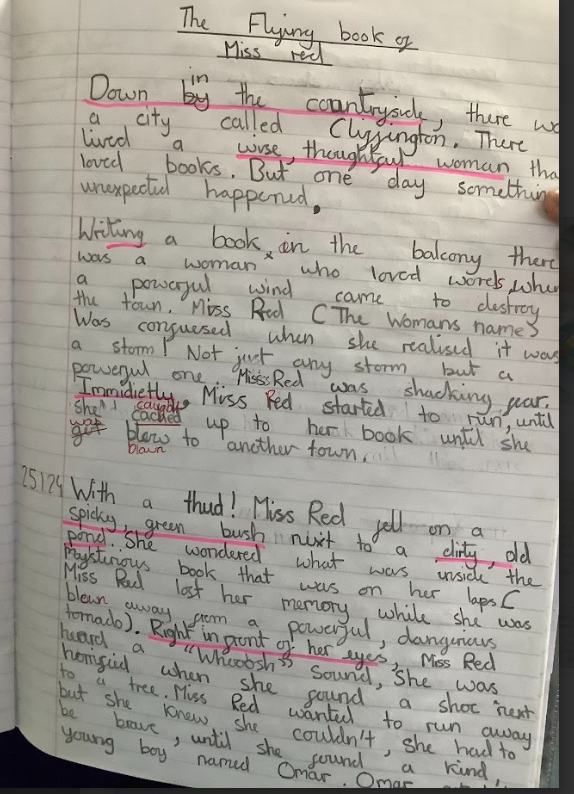 The Flying book of
Miss red
Down by in the countryside, there
a city called Cliffington. There
lived a wise, thoughtful woman
loved books. But one day
unexpected happened.
Writing a book in the balcony there
was a woman who loved words,
a powerful wind came to destroy
the town. Miss Red (The Womans name)
Was confuesed when she realised it was
a storm! Not just any storm but a
powerful one. Miss Red was shacking fear.
Immidietly, Miss Red started to run, until
she cached caught up to her book until she
was got blew to another town.
blown
25124 With a thud! Miss Red fell on a
spicky, green bush nixt to a dirty, old
pond. She wondered what was inside the
Mysterious book that was on her laps (
Miss Red lost her memory while she was
blewn away from a powerful, dangerous
tornado). Right in front of her eyes, Miss Red
heard a "Whoosh" Sound, She was
horrified when she found a shoe next
to a tree. Miss Red wanted to run away
but she knew she couldn't, she had to
be brave, until she found a kind,
young boy named Omar. Omar